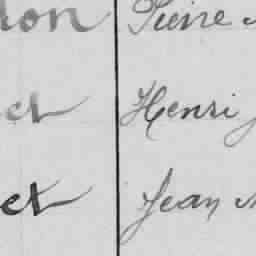 don Pierre
et Henri
et Jean